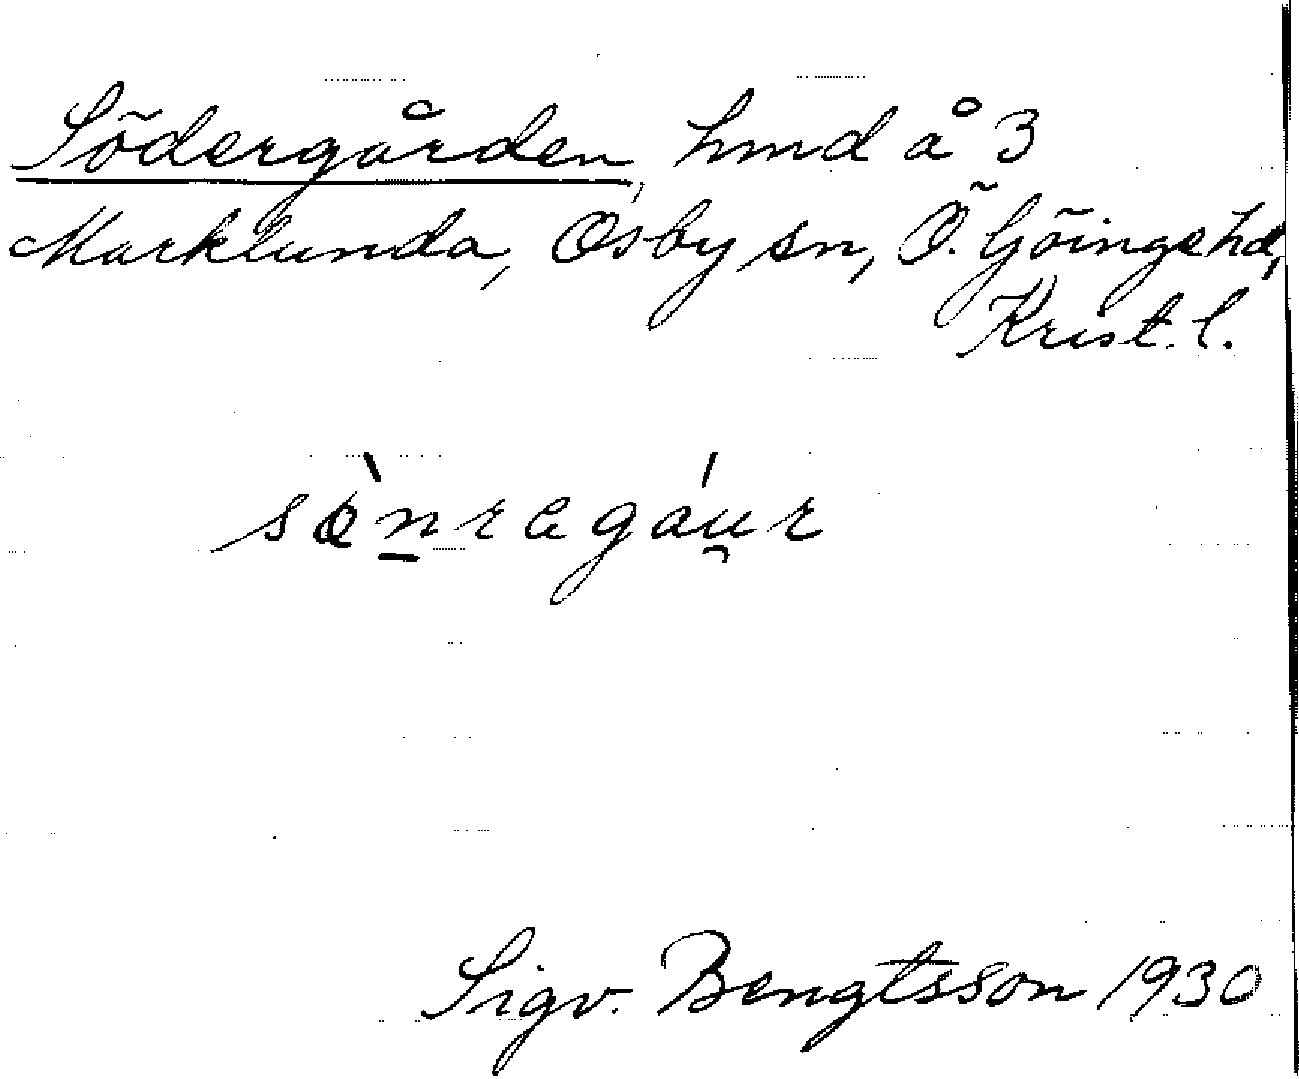 Södergården, hmd å 3
Marklunda, Osby sn, Ö. Göinge hd,
Krist. l.
sø̀n̲ragáu̯r
Sigv. Bengtsson 1930